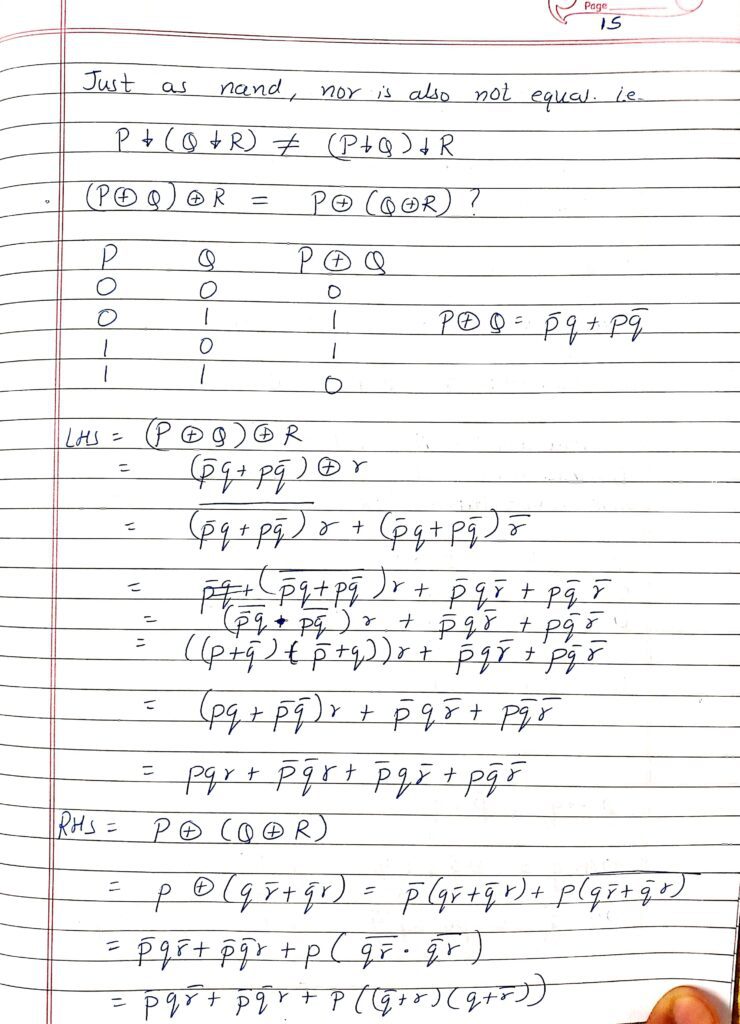 Page
15
Just as nand, nor is also not equal. i.e.
P ↓ (Q ↓ R) ≠ (P ↓ Q) ↓ R
(P ⊕ Q) ⊕ R = P ⊕ (Q ⊕ R) ?
P Q P ⊕ Q
0 0 0
0 1 1 P ⊕ Q = p̅q + pq̅
1 0 1
1 1 0
LHS = (P ⊕ Q) ⊕ R
= (p̅q + pq̅) ⊕ r
= \overline{(p̅q + pq̅)} r + (p̅q + pq̅) r̅
= (\overline{p̅q + pq̅}) r + p̅qr̅ + pq̅r̅
= (\overline{p̅q} • \overline{pq̅}) r + p̅qr̅ + pq̅r̅
= ((p + q̅)(p̅ + q)) r + p̅qr̅ + pq̅r̅
= (pq + p̅q̅) r + p̅qr̅ + pq̅r̅
= pqr + p̅q̅r + p̅qr̅ + pq̅r̅
RHS = P ⊕ (Q ⊕ R)
= p ⊕ (qr̅ + q̅r) = p̅(qr̅ + q̅r) + p(\overline{qr̅ + q̅r})
= p̅qr̅ + p̅q̅r + p(\overline{qr̅} • \overline{q̅r})
= p̅qr̅ + p̅q̅r + p((q̅ + r)(q + r̅))